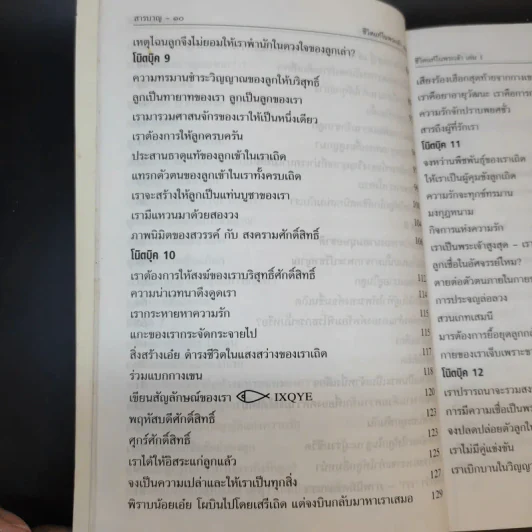 สารบาญ - ๑๐
ชีวิตแท้ในพระเจ้า
เหตุไฉนลูกจึงไม่ยอมให้เราพำนักในดวงใจของลูกเล่า?
โน๊ตบุ๊ค 9
ความทรมานชำระวิญญาณของลูกให้บริสุทธิ์
ลูกเป็นทายาทของเรา ลูกเป็นลูกของเรา
เรามารวมศาสนจักรของเราให้เป็นหนึ่งเดียว
เราต้องการให้ลูกครบครัน
ประสานธาตุแท้ของลูกเข้าในเราเถิด
แทรกตัวตนของลูกเข้าในเราทั้งครบเถิด
เราจะสร้างให้ลูกเป็นแท่นบูชาของเรา
เรามีแหวนมาด้วยสองวง
ภาพนิมิตของสวรรค์ กับ สงครามศักดิ์สิทธิ์
โน๊ตบุ๊ค 10
เราต้องการให้สงฆ์ของเราบริสุทธิ์ศักดิ์สิทธิ์
ความน่าเวทนาดึงดูดเรา 112
เรากระหายหาความรัก 114
แกะของเรากระจัดกระจายไป 115
สิ่งสร้างเอ๋ย ดำรงชีวิตในแสงสว่างของเราเถิด 117
ร่วมแบกกางเขน 118
เขียนสัญลักษณ์ของเรา IXQYE 120
พฤหัสบดีศักดิ์สิทธิ์ 123
ศุกร์ศักดิ์สิทธิ์ 123
เราได้ให้อิสระแก่ลูกแล้ว 125
จงเป็นความเปล่าและให้เราเป็นทุกสิ่ง 127
พิราบน้อยเอ๋ย โผบินไปโดยเสรีเถิด แต่จงบินกลับมาหาเราเสมอ 129
ชีวิตแท้ในพระเจ้า เล่ม 1
เสียงร้องเฮือกสุดท้ายจากกางเข
เราคือยาอายุวัฒนะ เราคือการ
ความรักจักปราบพยศชั่ว
สารถึงผู้ที่รักเรา
โน๊ตบุ๊ค 11
จงหว่านพืชพันธุ์ของเราเถิด
ให้เราเป็นผู้คุมขังลูกเถิด
ความรักจะทุกข์ทรมาน
มงกุฎหนาม
กิจการแห่งความรัก
เราเป็นพระเจ้าสูงสุด - เรา
ลูกเชื่อในอัศจรรย์ไหม?
ตายต่อตัวตนภายในกาย
การประจญล่อลวง
สวนเกทเสมนี
มารต้องการยื้อยุดลูกกลับ
กายของเราเจ็บเพราะขา
โน๊ตบุ๊ค 12
เราปรารถนาจะรวมสง
การมีความเชื่อเป็นพร
จงปลดปล่อยตัวลูกให้
เราไม่มีคู่แข่งขัน
เราเบิกบานในวิญญา